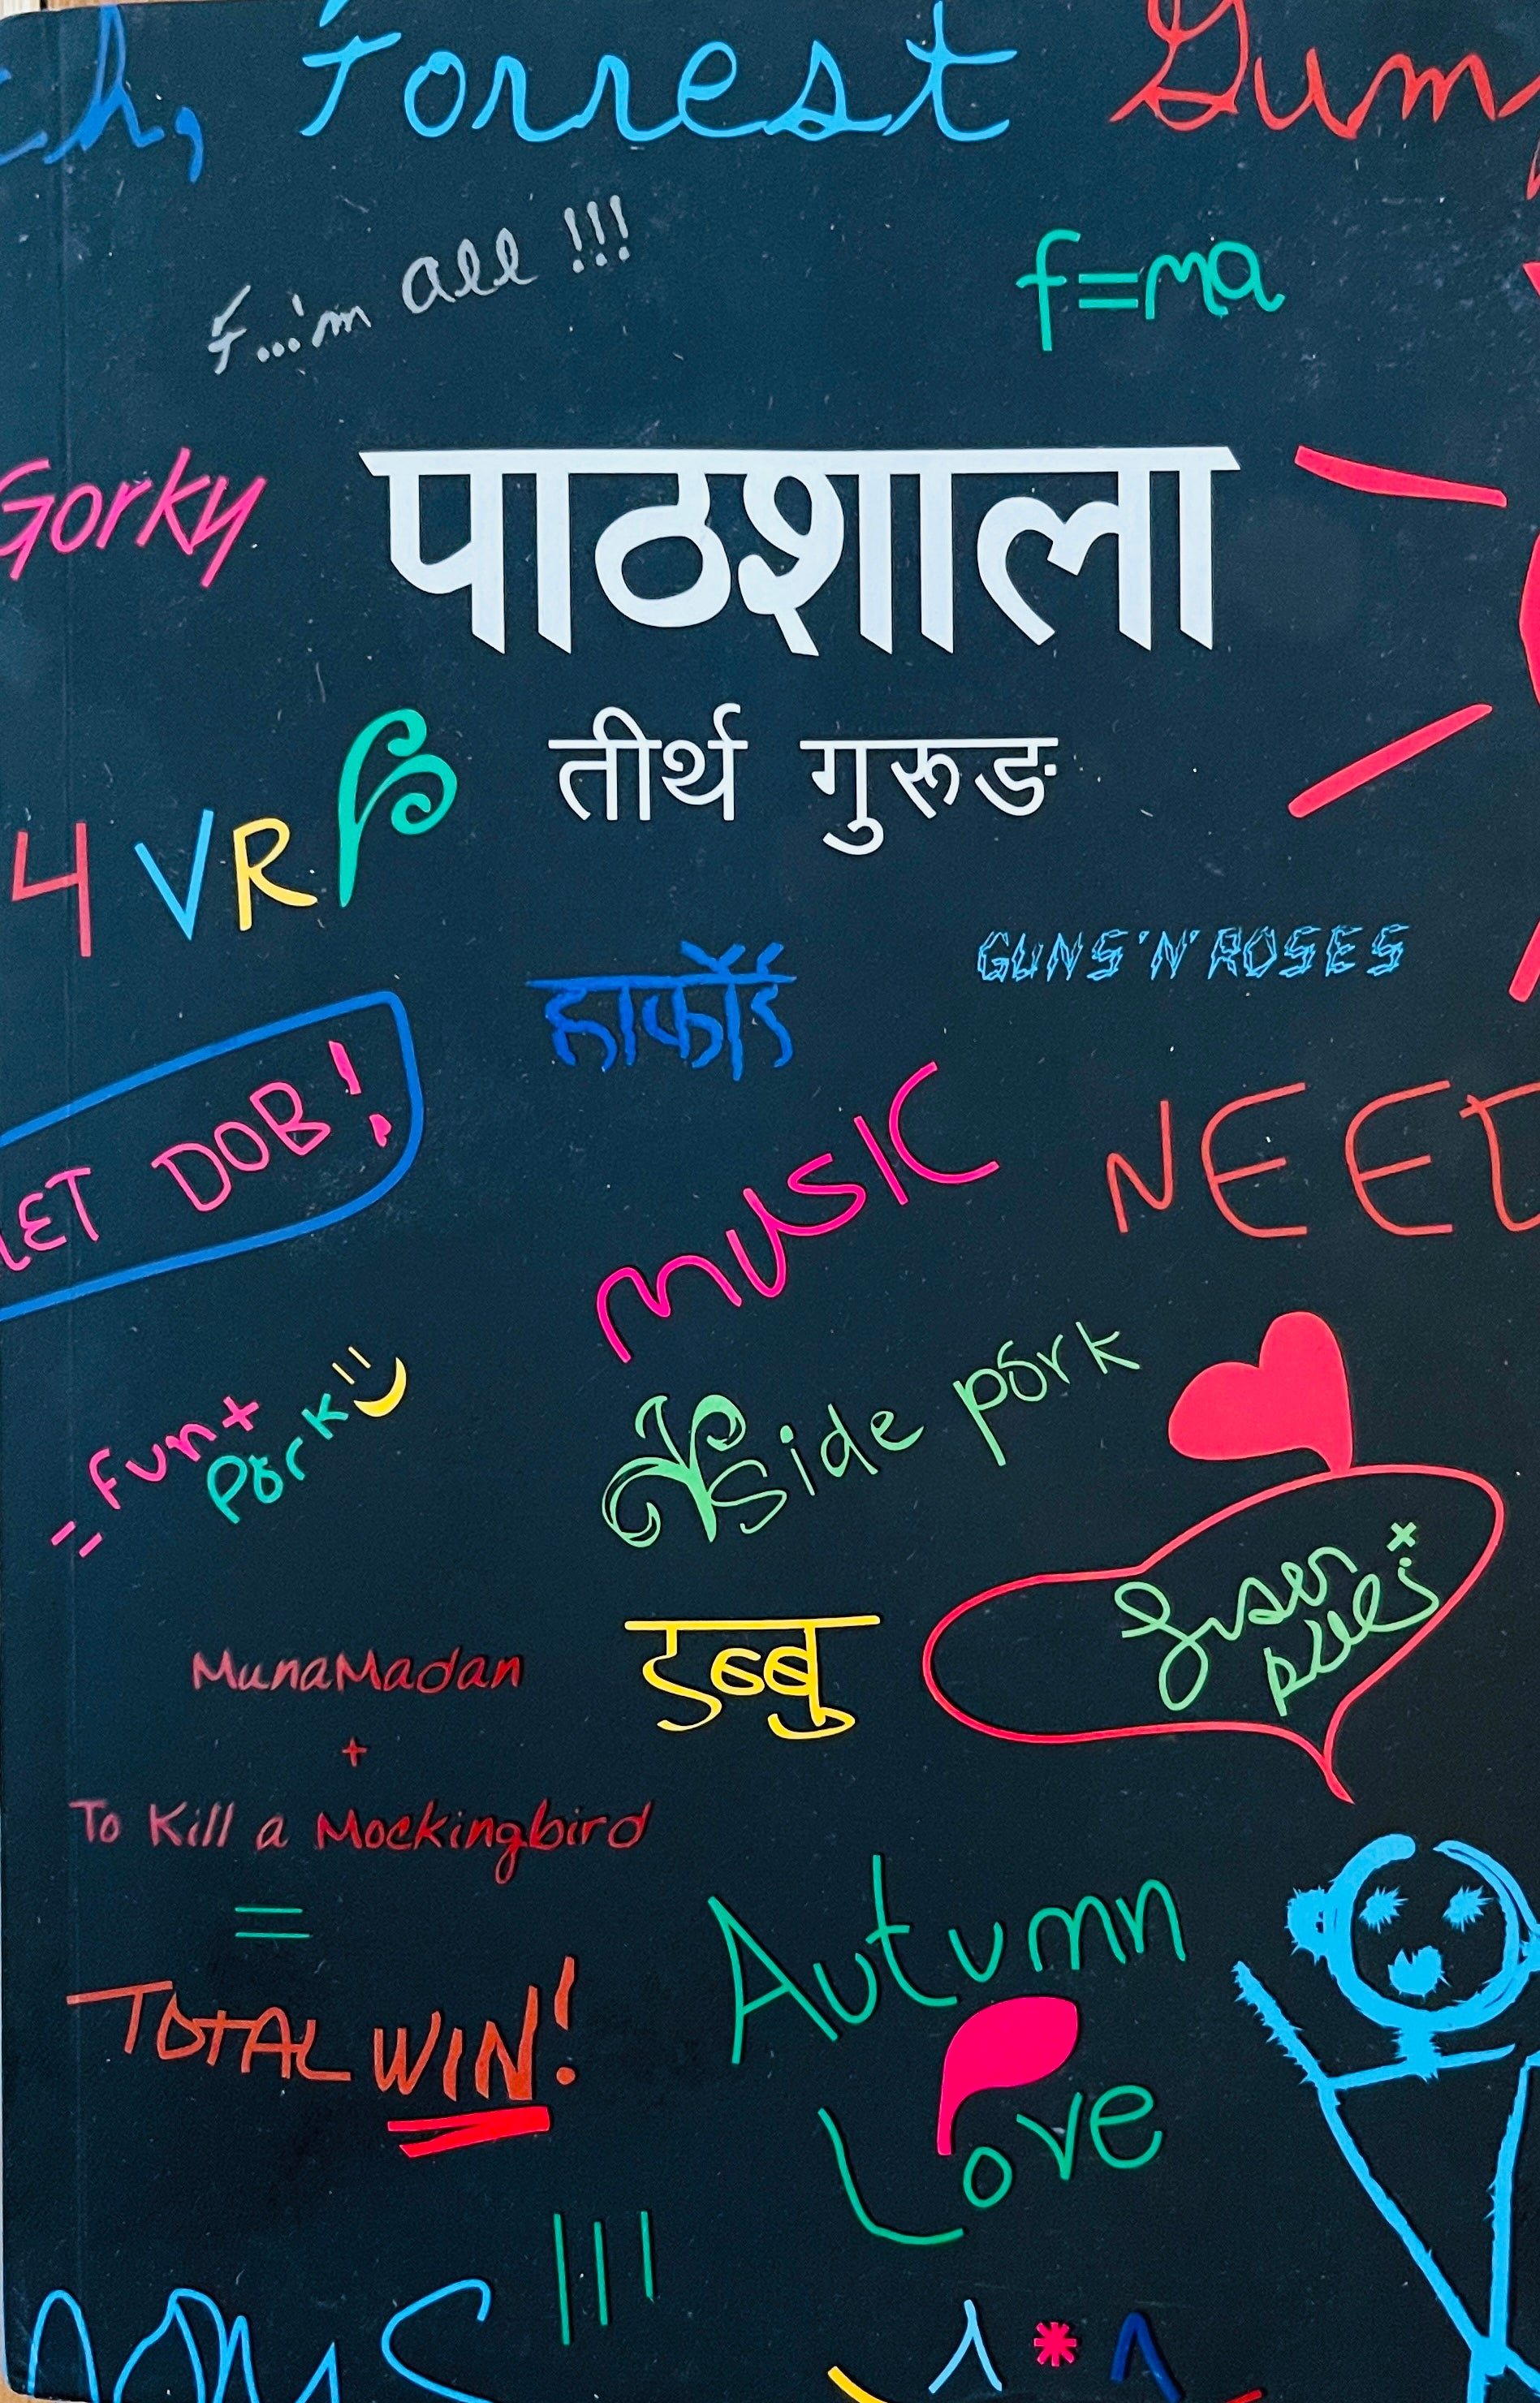 ch, Forrest Gum
F...'m all !!!
f=ma
Gorky
पाठशाला
तीर्थ गुरूङ
4 VR
GUNS 'N' ROSES
हाकॉर्ड
LET DOB!
MUSIC
NEED
= Fun+
Pork
side pork
डब्बु
MunaMadan
+
To Kill a Mockingbird
=
TOTAL WIN!
Autumn
Love